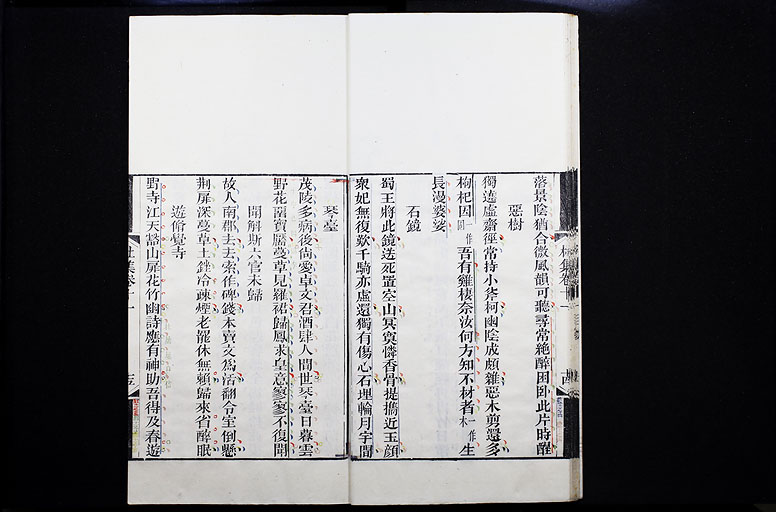 落景陰猶合微風韻可聽尋常絶醉困臥此片時醒
惡樹
獨遶虛齋徑常持小斧柯幽陰成頗雜惡木剪還多
枸杞因一作固吾有雞棲奈汝何方知不材者一作木生
長漫婆娑
石鏡
蜀王將此鏡送死置空山冥寞憐香骨提攜近玉顔
衆妃無復歎千騎亦虛還獨有傷心石埋輪月宇間
琴臺
茂陵多病後尙愛卓文君酒肆人間世琴臺日暮雲
野花留寶靨蔓草見羅裙歸鳳求皇意寥寥不復聞
聞斛斯六官未歸
故人南郡去去索作碑錢本賣文爲活翻令室倒懸
荆扉深蔓草土銼冷疎煙老罷休無賴歸來省醉眠
遊脩覺寺
野寺江天豁山扉花竹幽詩應有神助吾得及春遊
杜集卷十一